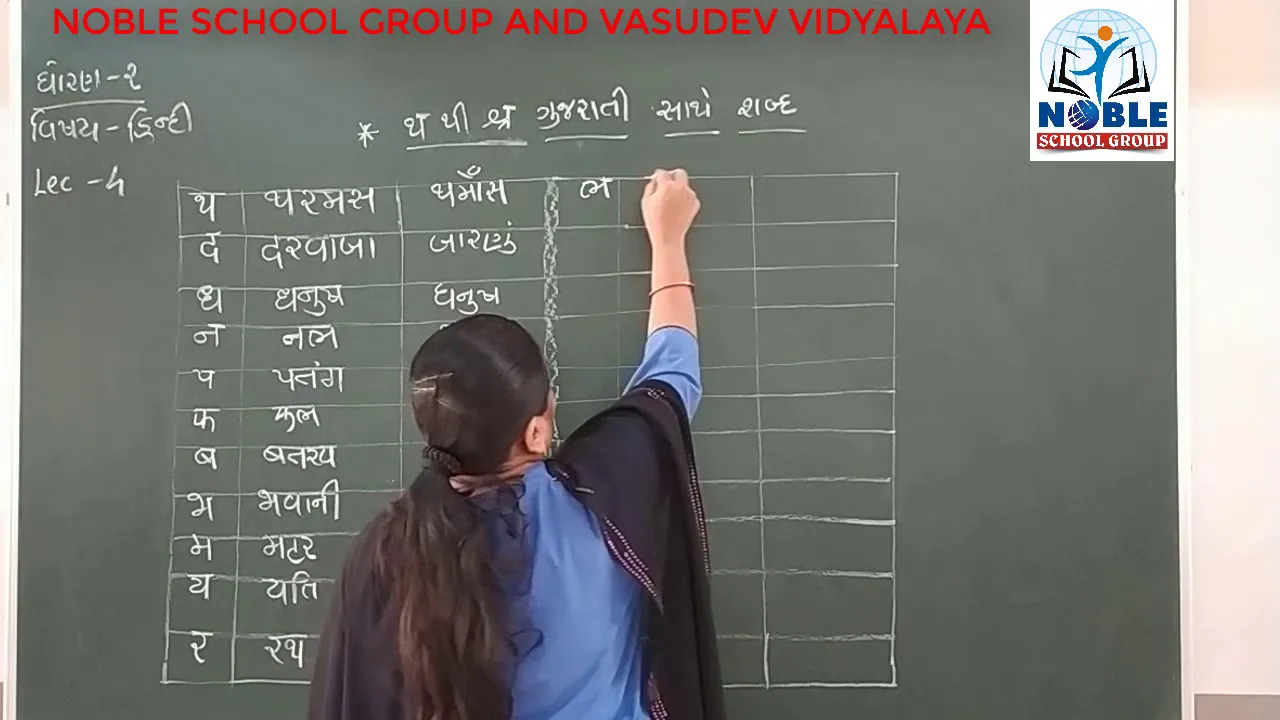 NOBLE SCHOOL GROUP AND VASUDEV VIDYALAYA
NOBLE
SCHOOL GROUP
ધોરણ-૨
વિષય-હિન્દી
Lec -4
* थ થી श्र ગુજરાતી સાથે શબ્દ
थ थरमस થર્મોંસ ल
द दरवाजा બારણું
ध धनुष ધનુષ
न नल
प पतंग
फ फल
ब बतख
भ भवानी
म मटर
य यति
र रथ